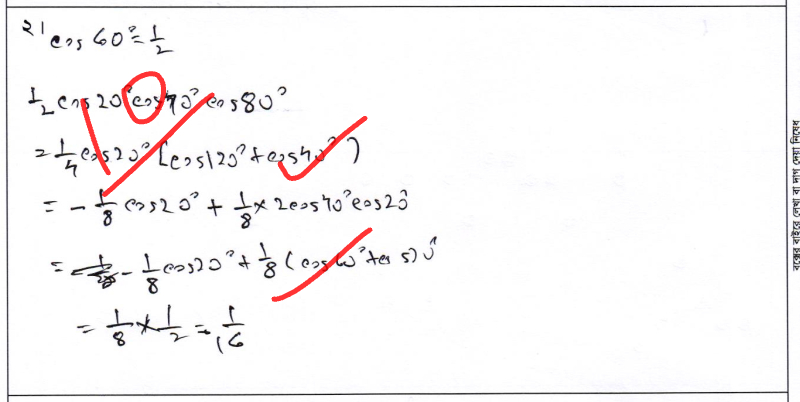 ২। cos 60° = 1/2
1/2 cos20° cos40° cos80°
= 1/4 cos20° [cos120° + cos40°)
= - 1/8 cos20° + 1/8 × 2cos40° cos20°
= - 1/8 cos20° + 1/8 (cos60° + cos20°
= 1/8 × 1/2 = 1/16
বক্সের বাইরে লেখা বা দাগ দেয়া নিষেধ